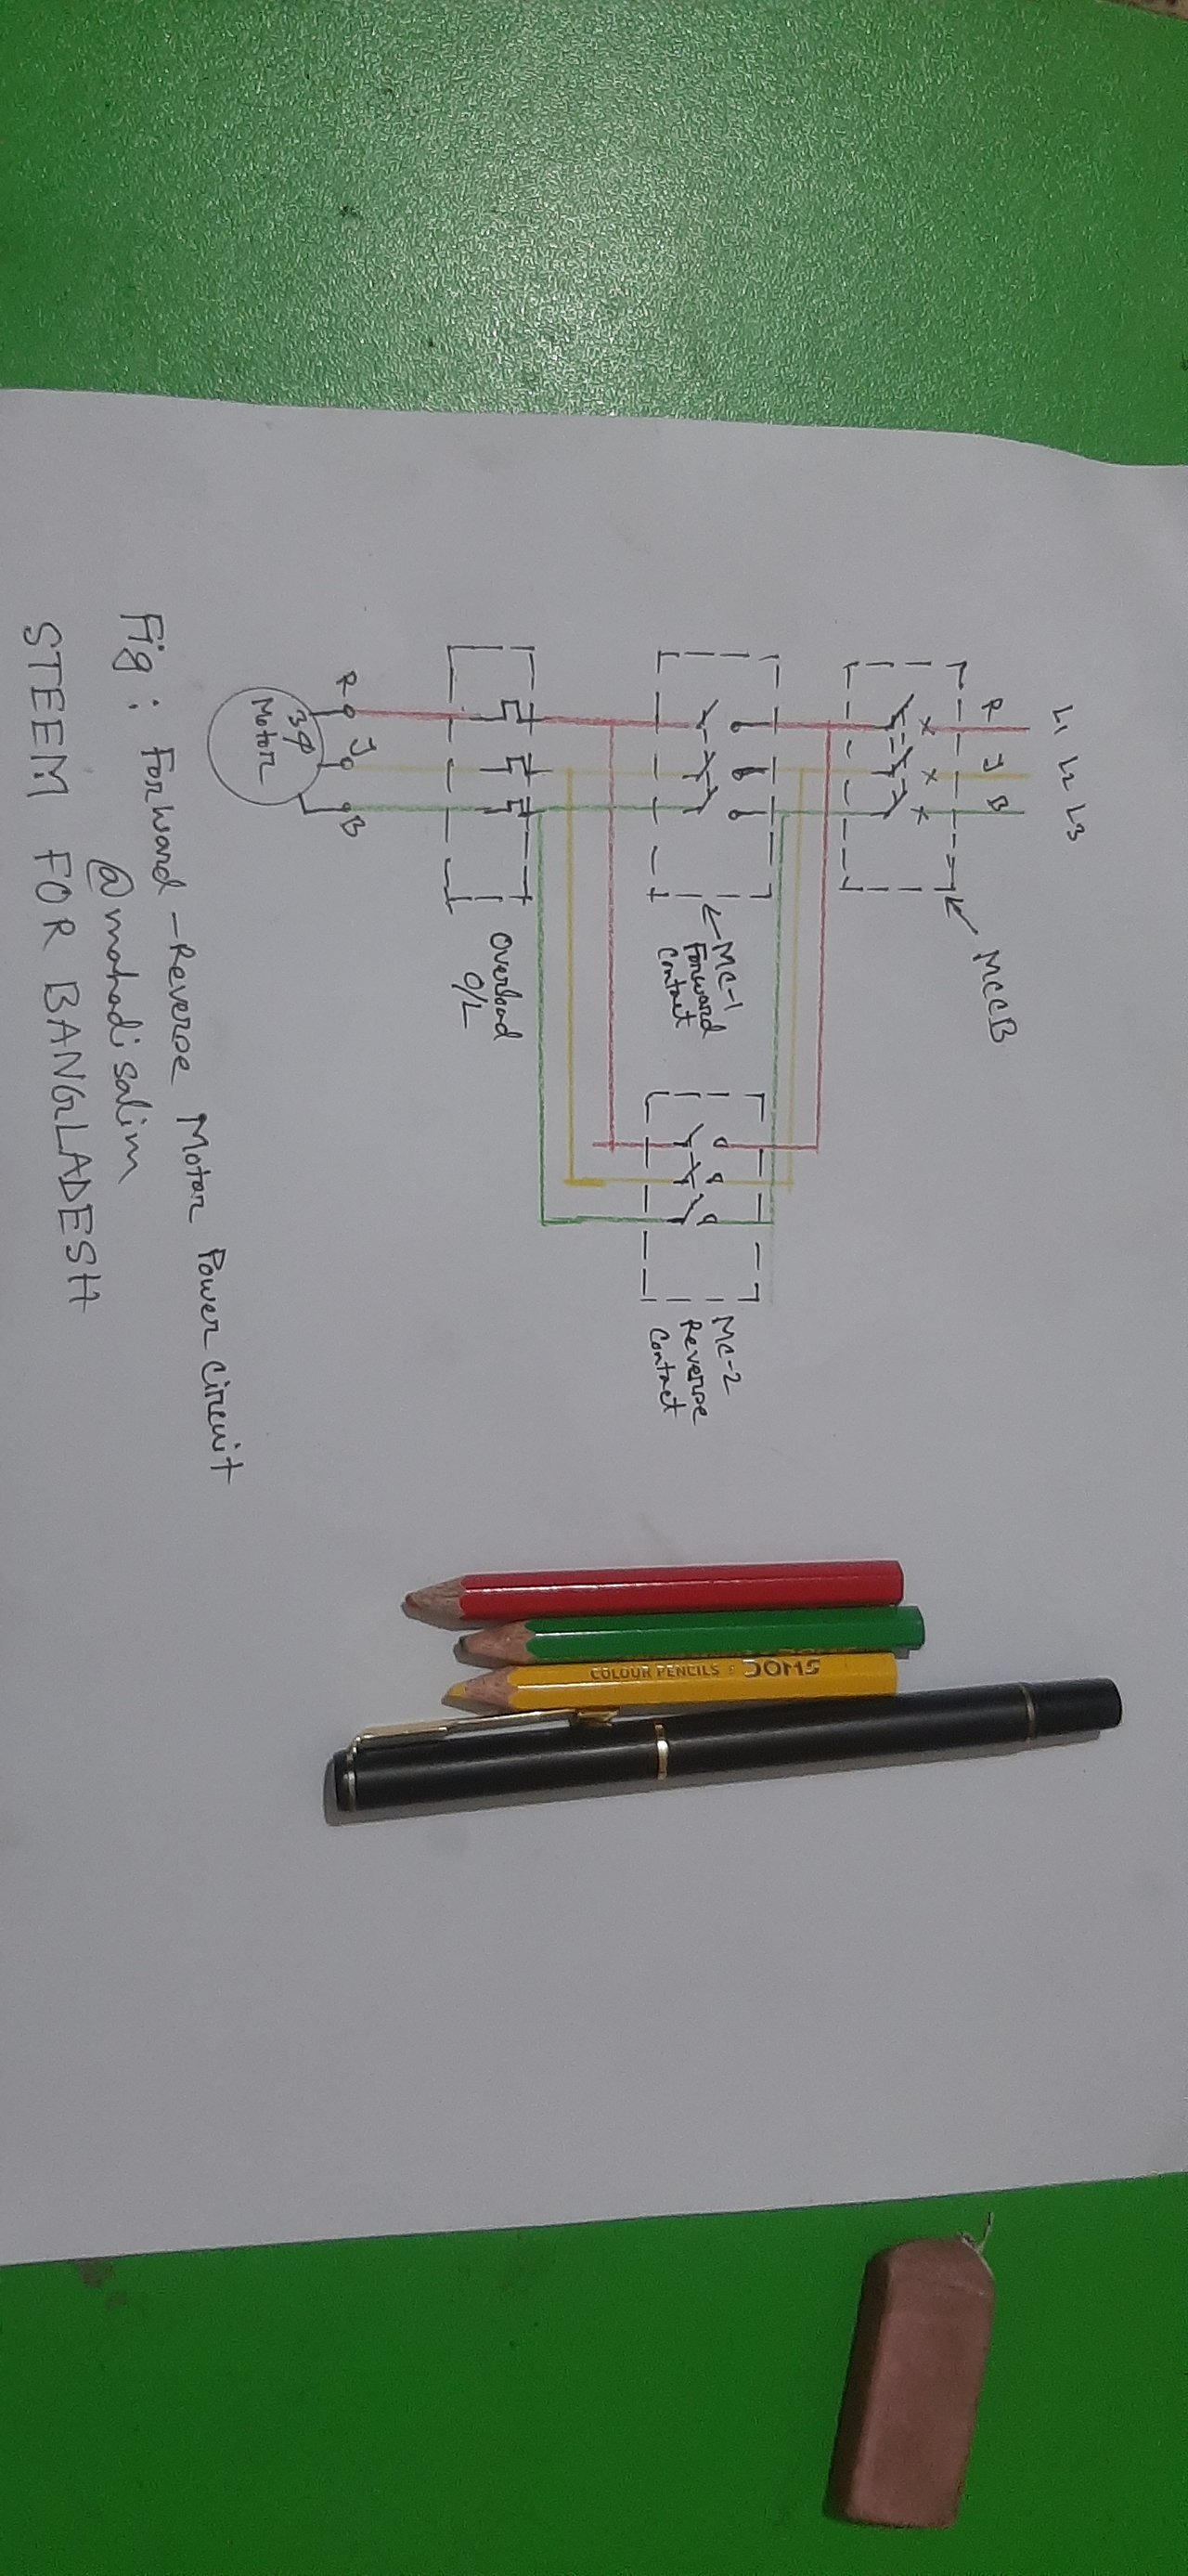 L1 L2 L3
R Y B
MCCB
MC-1
Forward
Contact
MC-2
Reverse
Contact
Overload
O/L
R Y B
3φ
Motor
Fig : Forward - Reverse Motor Power Circuit
@mahadisalim
STEEM FOR BANGLADESH
COLOUR PENCILS : DOMS